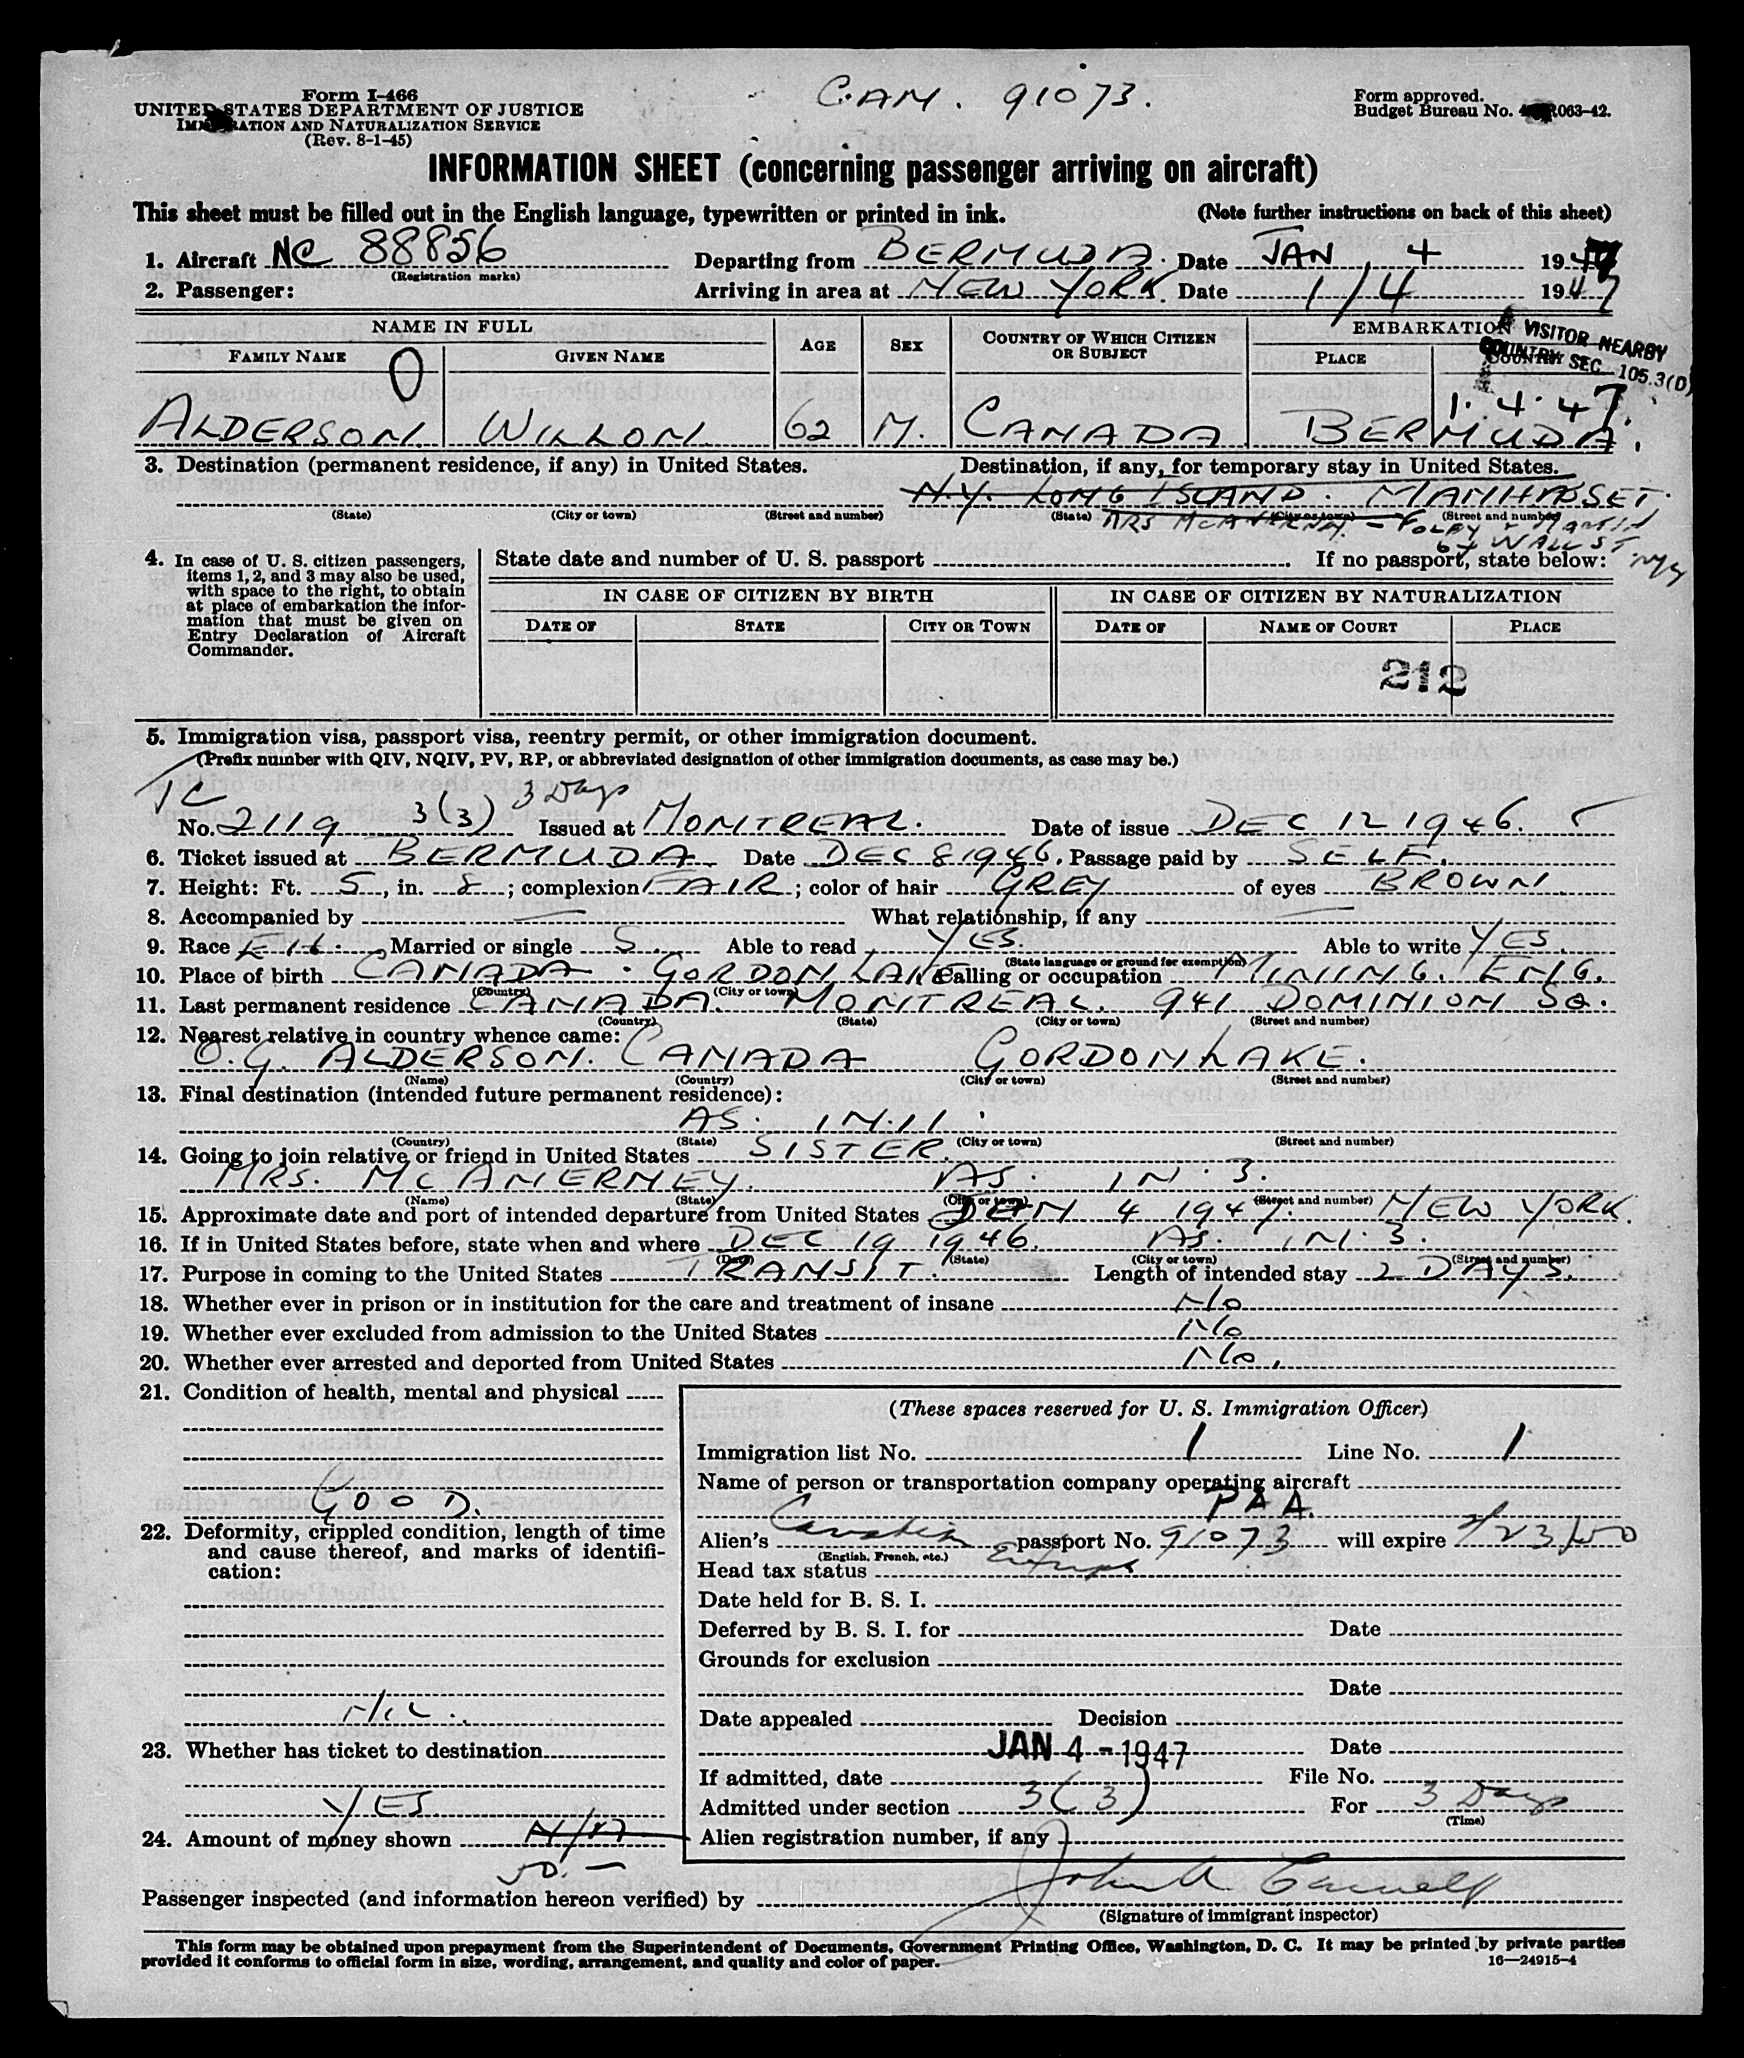 Form I-466
UNITED STATES DEPARTMENT OF JUSTICE
IMMIGRATION AND NATURALIZATION SERVICE
(Rev. 8-1-45)
CAN. 91073.
Form approved.
Budget Bureau No. R063-42.
INFORMATION SHEET (concerning passenger arriving on aircraft)
This sheet must be filled out in the English language, typewritten or printed in ink. (Note further instructions on back of this sheet)
1. Aircraft NC 88856 Departing from BERMUDA. Date JAN 4 1947
(Registration marks)
2. Passenger: Arriving in area at NEW YORK. Date 1/4 1947
NAME IN FULL AGE SEX COUNTRY OF WHICH CITIZEN OR SUBJECT EMBARKATION
FAMILY NAME GIVEN NAME PLACE COUNTRY
VISITOR NEARBY
COUNTRY SEC 105.3(D)
0
1.4.47
ALDERSON WILLON 62 M. CANADA BERMUDA.
3. Destination (permanent residence, if any) in United States. Destination, if any, for temporary stay in United States.
N.Y. LONG ISLAND. MANHASSET.
(State) (City or town) (Street and number) (State) (City or town) (Street and number)
MRS MCANERNEY. - FOLEY & MARTIN
64 WALL ST. NY
4. In case of U. S. citizen passengers, items 1, 2, and 3 may also be used, with space to the right, to obtain at place of embarkation the information that must be given on Entry Declaration of Aircraft Commander.
State date and number of U. S. passport If no passport, state below:
IN CASE OF CITIZEN BY BIRTH IN CASE OF CITIZEN BY NATURALIZATION
DATE OF STATE CITY OR TOWN DATE OF NAME OF COURT PLACE
212
5. Immigration visa, passport visa, reentry permit, or other immigration document.
(Prefix number with QIV, NQIV, PV, RP, or abbreviated designation of other immigration documents, as case may be.)
TC 3 Days
No. 2119 3(3) Issued at MONTREAL. Date of issue DEC 12 1946.
6. Ticket issued at BERMUDA. Date DEC 8 1946. Passage paid by SELF.
7. Height: Ft. 5, in. 8; complexion FAIR; color of hair GREY of eyes BROWN.
8. Accompanied by — What relationship, if any —
9. Race EN. Married or single S. Able to read YES. Able to write YES.
(State language or ground for exemption)
10. Place of birth CANADA. GORDON LAKE Calling or occupation MINING. ENG.
(Country) (City or town)
11. Last permanent residence CANADA. MONTREAL. 941 DOMINION SQ.
(Country) (State) (City or town) (Street and number)
12. Nearest relative in country whence came:
O.G. ALDERSON. CANADA GORDON LAKE.
(Name) (Country) (City or town) (Street and number)
13. Final destination (intended future permanent residence):
AS. IN. 11.
(Country) (State) (City or town) (Street and number)
14. Going to join relative or friend in United States SISTER.
MRS. MCANERNEY. AS. IN. 3.
(Name) (State) (City or town) (Street and number)
15. Approximate date and port of intended departure from United States JAN 4 1947. NEW YORK.
16. If in United States before, state when and where DEC 19 1946. AS. IN. 3.
(Date) (State) (City or town) (Street and number)
17. Purpose in coming to the United States TRANSIT. Length of intended stay 2 DAYS.
18. Whether ever in prison or in institution for the care and treatment of insane No
19. Whether ever excluded from admission to the United States No
20. Whether ever arrested and deported from United States No.
21. Condition of health, mental and physical
GOOD.
22. Deformity, crippled condition, length of time and cause thereof, and marks of identification:
NIL.
23. Whether has ticket to destination
YES
24. Amount of money shown
50. —
(These spaces reserved for U. S. Immigration Officer)
Immigration list No. 1 Line No. 1
Name of person or transportation company operating aircraft
PAA.
Alien's Canadian passport No. 91073 will expire 2/23/50
(English, French, etc.)
Head tax status Exempt
Date held for B. S. I.
Deferred by B. S. I. for Date
Grounds for exclusion
Date
Date appealed Decision
Date
JAN 4 - 1947
If admitted, date File No.
Admitted under section 3(3) For 3 Days
(Time)
Alien registration number, if any
Passenger inspected (and information hereon verified) by John A.
(Signature of immigrant inspector)
This form may be obtained upon prepayment from the Superintendent of Documents, Government Printing Office, Washington, D. C. It may be printed by private parties
provided it conforms to official form in size, wording, arrangement, and quality and color of paper. 16—24915-4